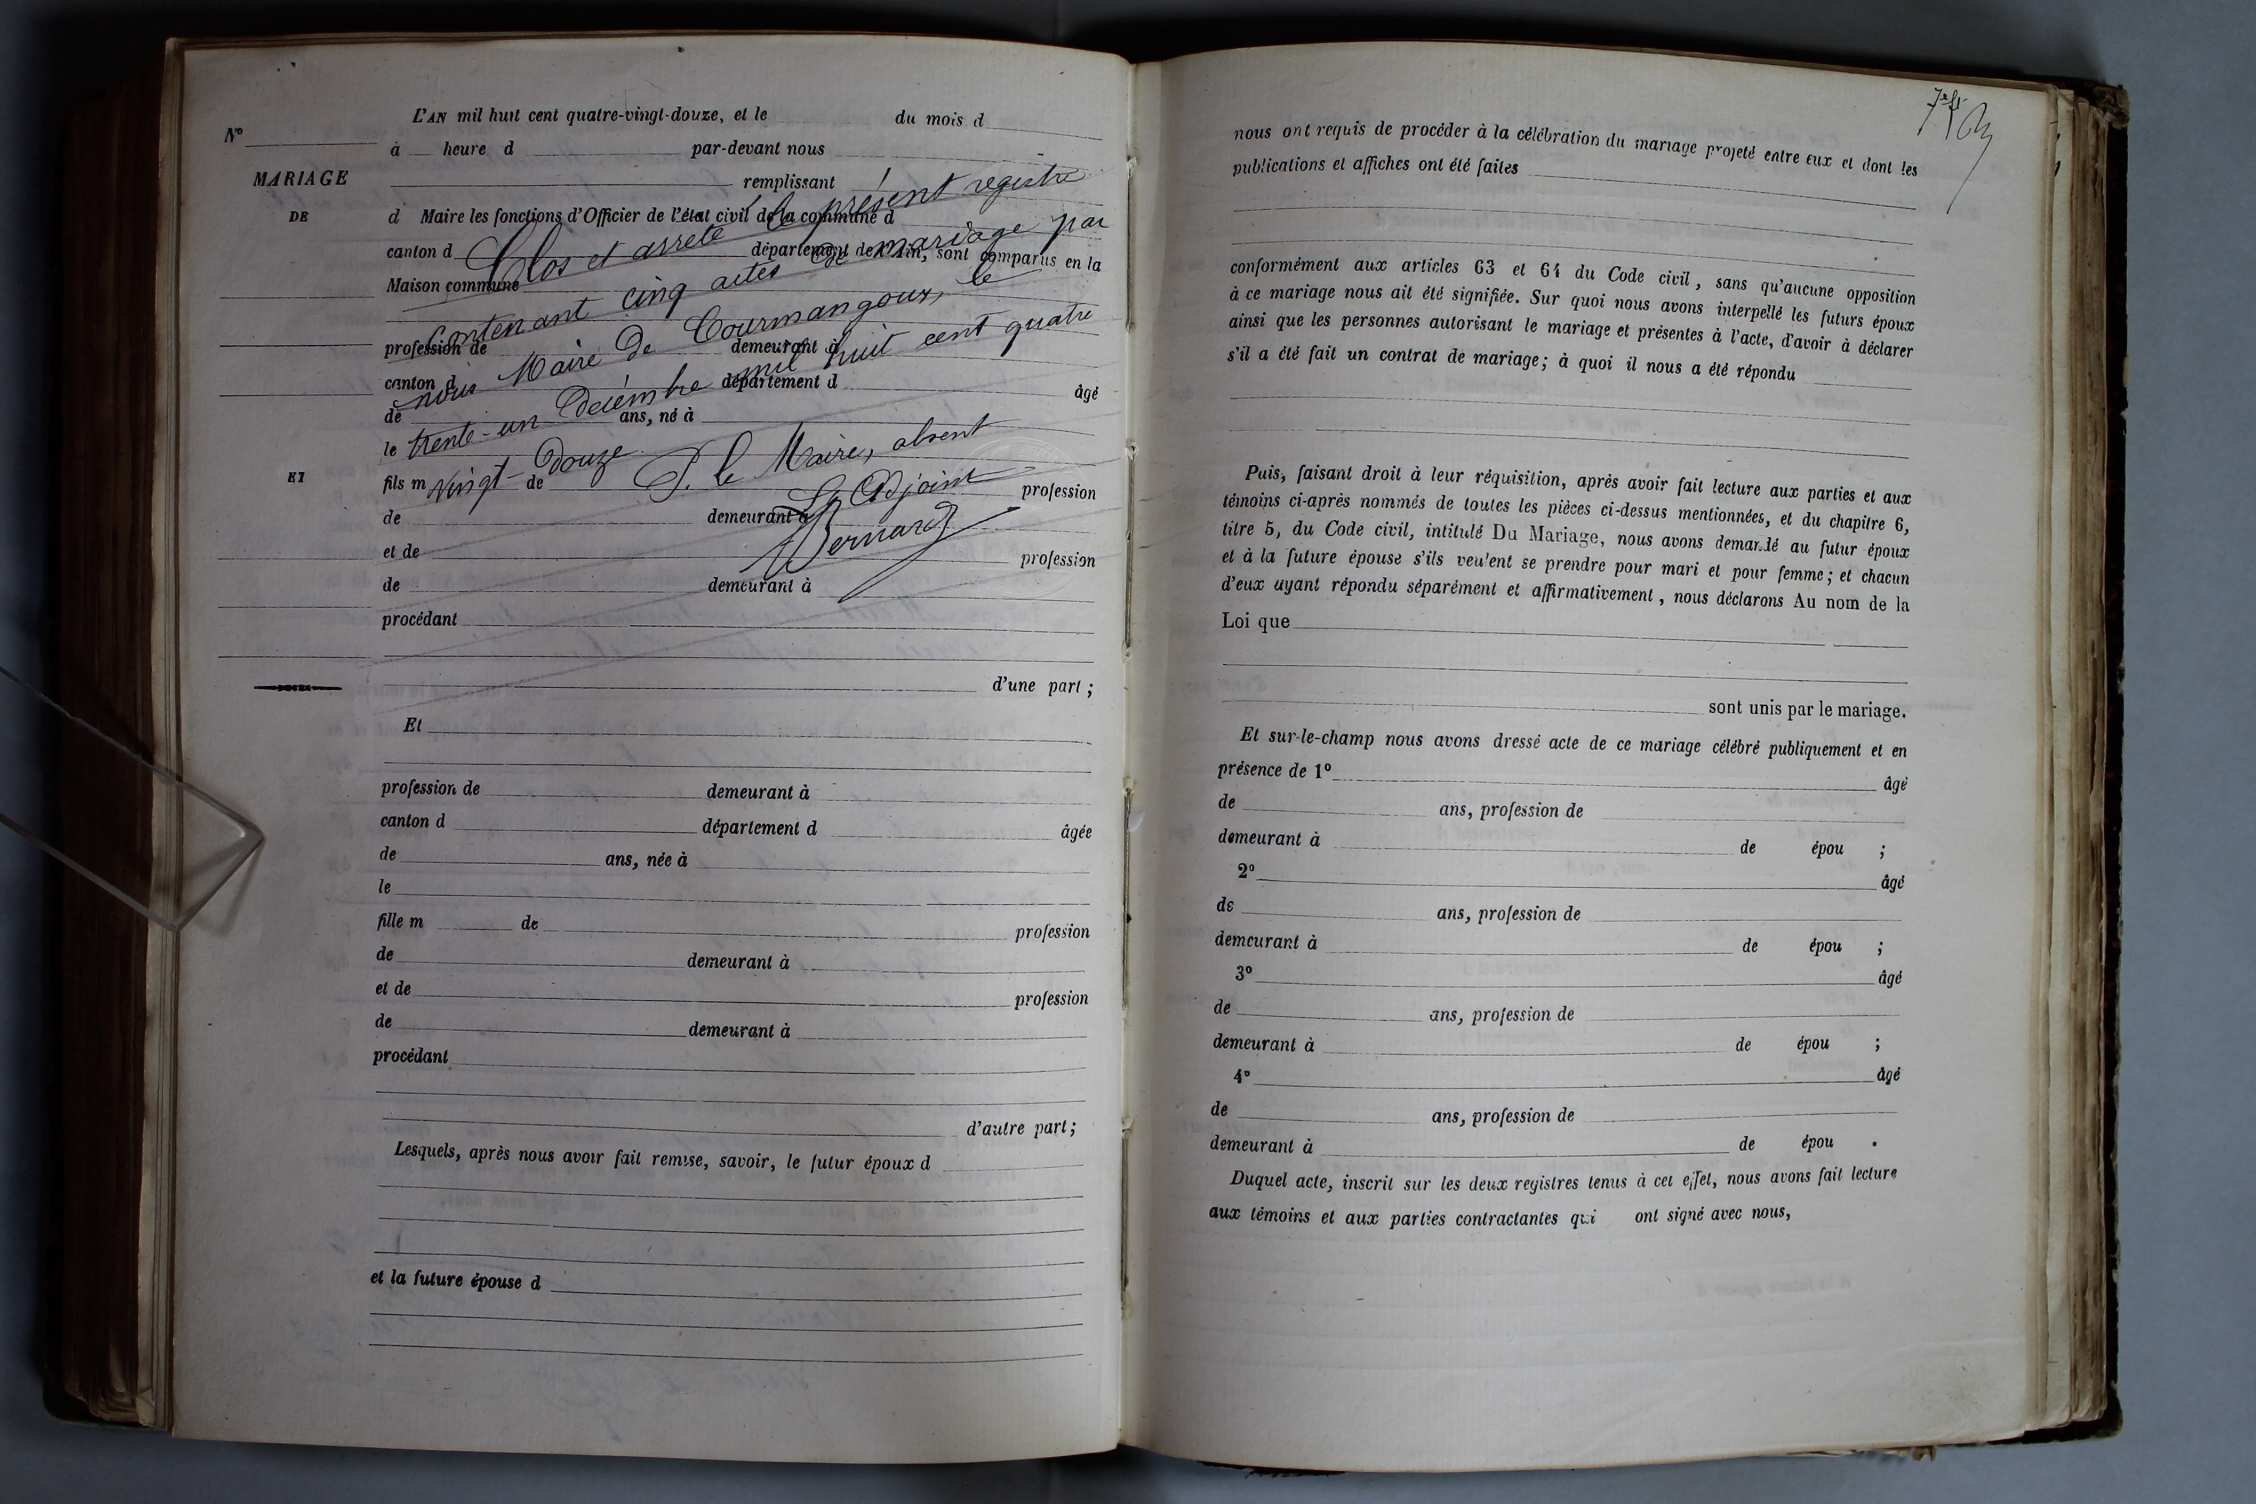 L'AN mil huit cent quatre-vingt-douze, et le du mois d
N° à heure d par-devant nous
MARIAGE remplissant
DE d Maire les fonctions d'Officier de l'état civil de la commune d
canton d département de l'Ain, sont comparus en la
Maison commune
Clos et arrêté le présent registre
contenant cinq actes de mariage par
nous Maire de Courmangoux, le
trente-un Décembre mil huit cent quatre
vingt-douze.
P. le Maire, absent
L'Adjoint
Bernard
profession de demeurant à
canton d département d âgé
de ans, né à
le
ET fils m de profession
de demeurant à
et de profession
de demeurant à
procédant
d'une part ;
Et
profession de demeurant à
canton d département d âgée
de ans, née à
le
fille m de profession
de demeurant à
et de profession
de demeurant à
procédant
d'autre part ;
Lesquels, après nous avoir fait remise, savoir, le futur époux d
et la future épouse d
nous ont requis de procéder à la célébration du mariage projeté entre eux et dont les
publications et affiches ont été faites
conformément aux articles 63 et 64 du Code civil, sans qu'aucune opposition
à ce mariage nous ait été signifiée. Sur quoi nous avons interpellé les futurs époux
ainsi que les personnes autorisant le mariage et présentes à l'acte, d'avoir à déclarer
s'il a été fait un contrat de mariage; à quoi il nous a été répondu
Puis, faisant droit à leur réquisition, après avoir fait lecture aux parties et aux
témoins ci-après nommés de toutes les pièces ci-dessus mentionnées, et du chapitre 6,
titre 5, du Code civil, intitulé Du Mariage, nous avons demandé au futur époux
et à la future épouse s'ils veulent se prendre pour mari et pour femme; et chacun
d'eux ayant répondu séparément et affirmativement, nous déclarons Au nom de la
Loi que
sont unis par le mariage.
Et sur-le-champ nous avons dressé acte de ce mariage célébré publiquement et en
présence de 1° âgé
de ans, profession de
demeurant à de épou ;
2° âgé
de ans, profession de
demeurant à de épou ;
3° âgé
de ans, profession de
demeurant à de épou ;
4° âgé
de ans, profession de
demeurant à de épou .
Duquel acte, inscrit sur les deux registres tenus à cet effet, nous avons fait lecture
aux témoins et aux parties contractantes qui ont signé avec nous,